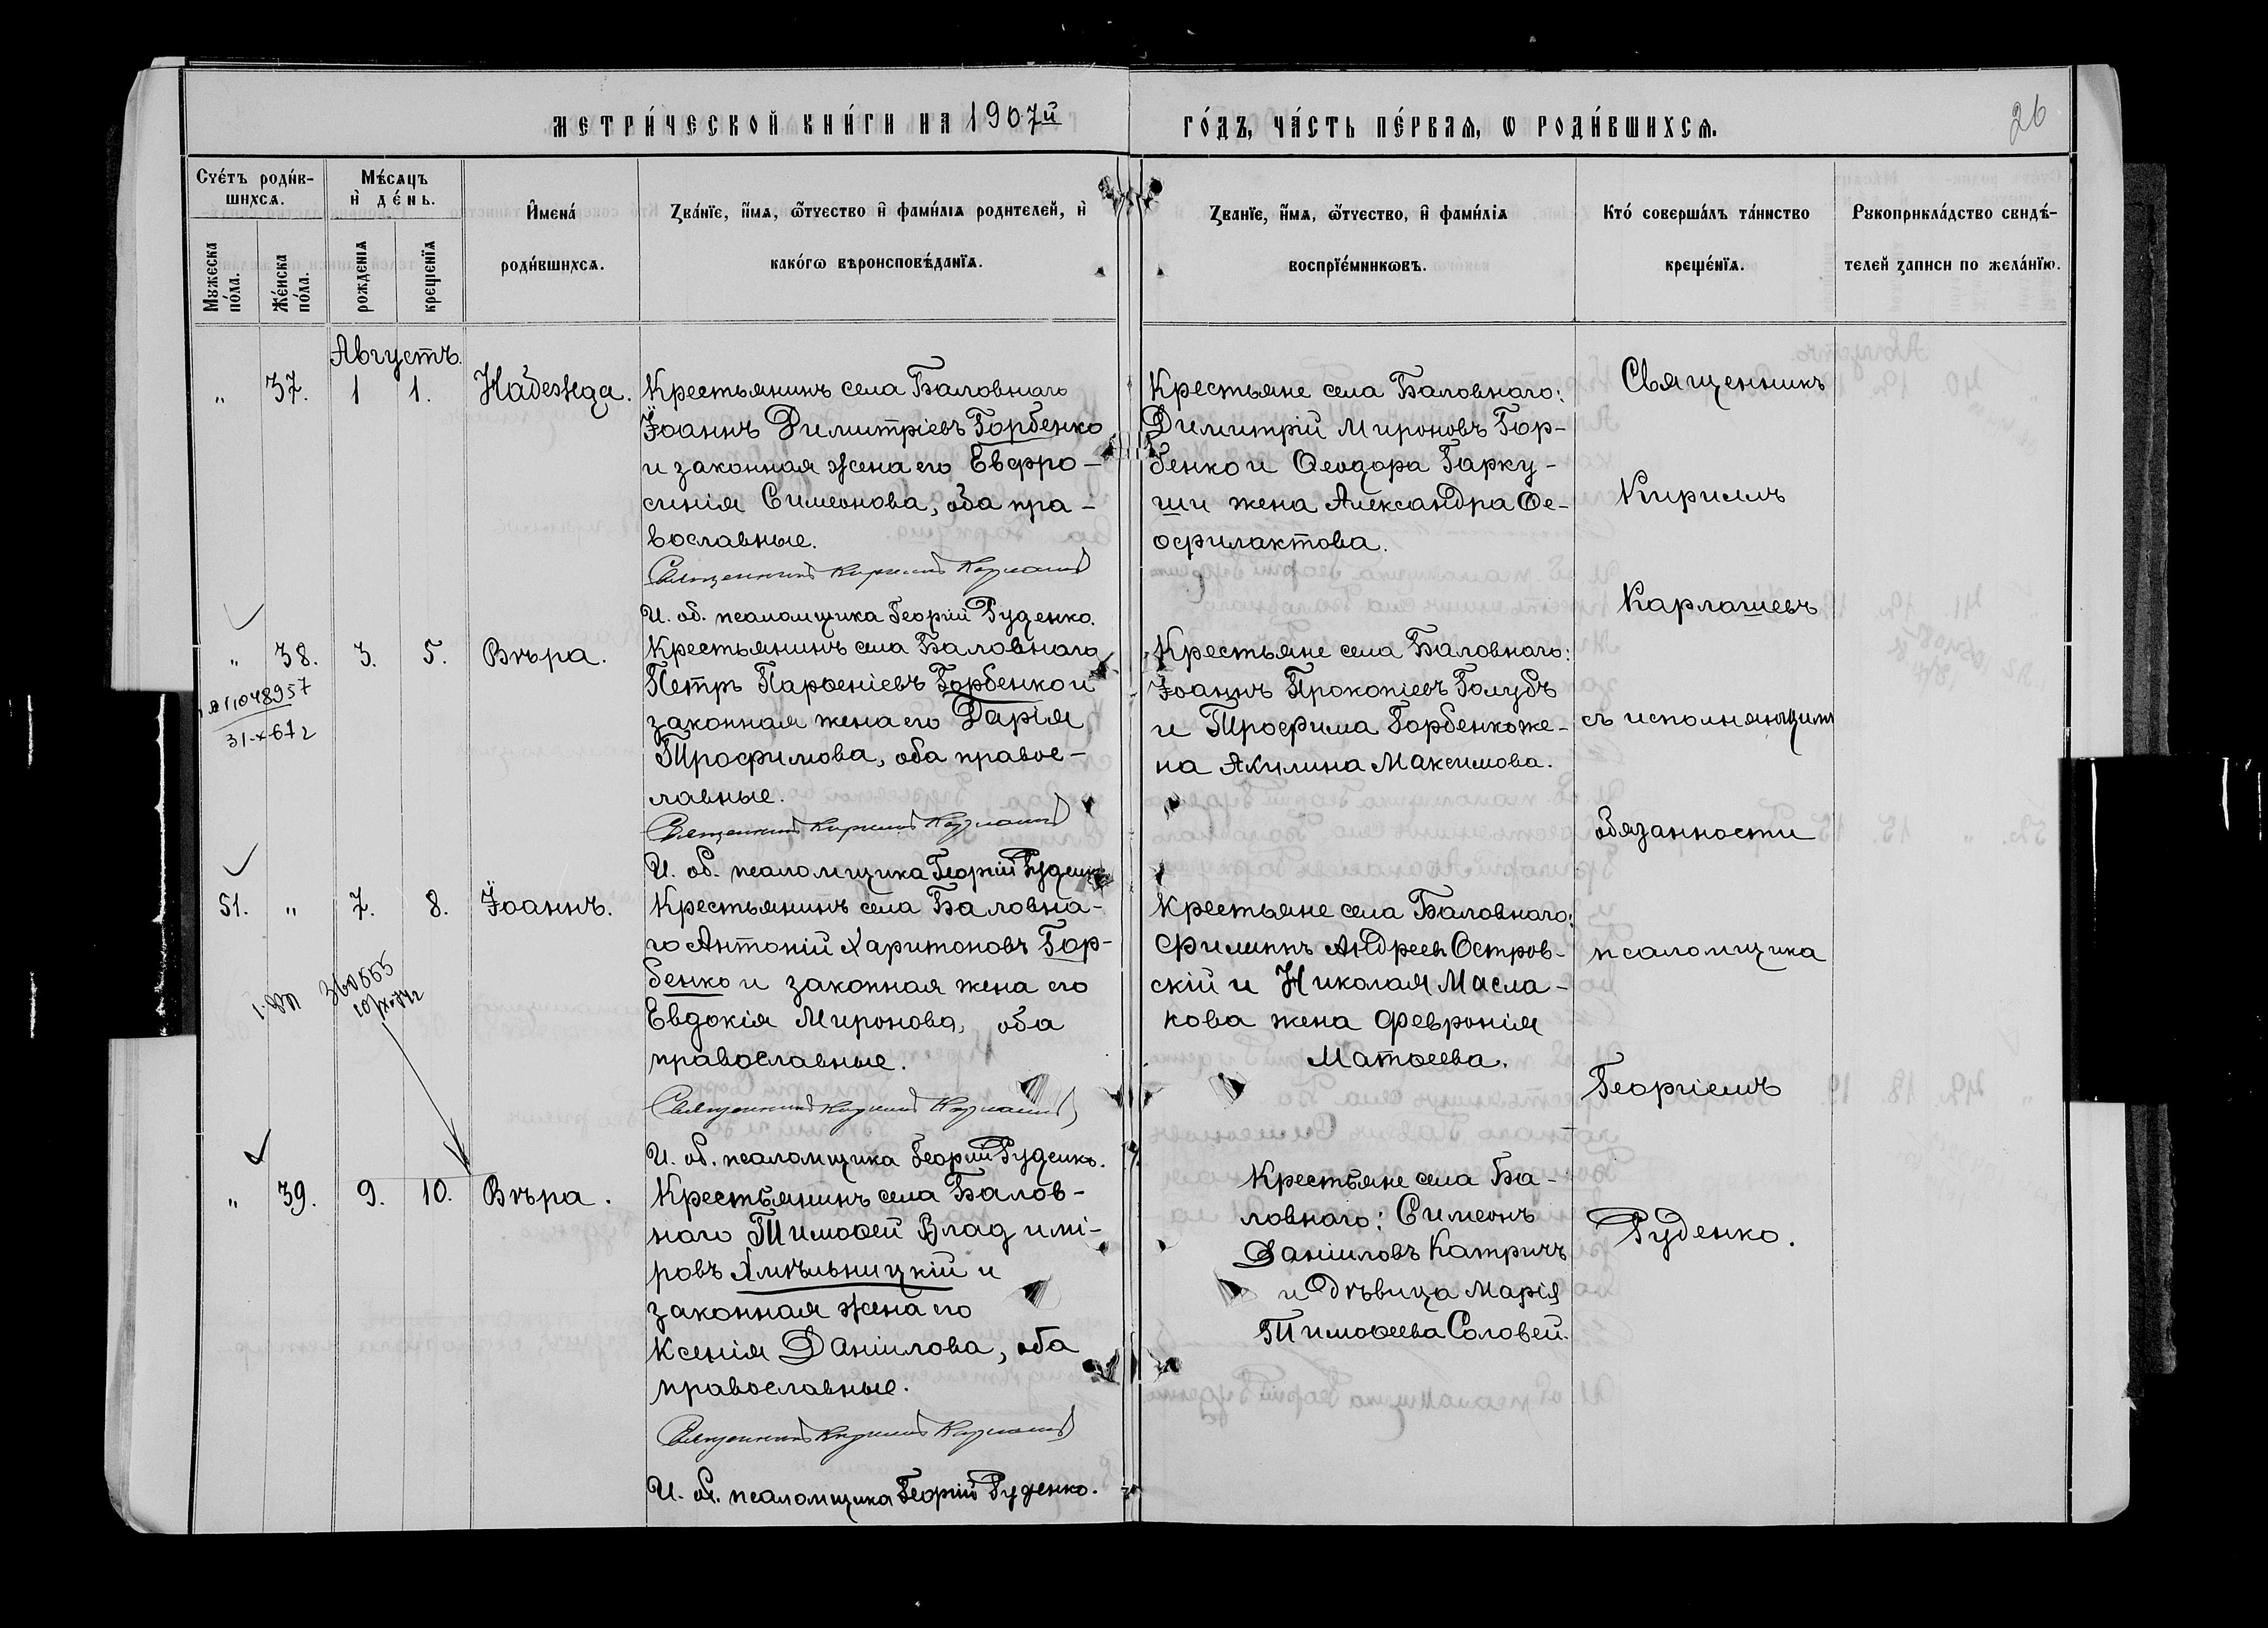 МЕТРИ́ЧЕСКОЙ КНИ́ГИ НА 1907й
ГО́ДЪ, ЧА́СТЬ ПЕ́РВАЯ, Ѡ РОДИ́ВШИХСѦ.
26
Сче́тъ роди́в-
шихсѧ.
Мꙋжеска
по́ла.
Же́нска
по́ла.
Мѣ́сѧцъ
и҆ де́нь.
рожденїѧ
крещенїѧ
И҆мена́
роди́вшихсѧ.
Зва́нїе, и҆́мѧ, ѻ҆́тчество и҆ фами́лїѧ родителей, и҆
како́гѡ вѣроисповѣ́данїѧ.
Званїе, и҆́мѧ, ѻ҆́тчество, и҆ фами́лїѧ
воспрїе́мникѡвъ.
Кто́ соверша́лъ та́инство
креще́нїѧ.
Рꙋкоприкла́дство свидѣ́-
телей записи по жела́нїю.
Августъ.
" 37. 1 1. Надежда.
Крестьянинъ села Баловнаго
Іоаннъ Димитріевъ Горбенко
и законная жена его Евфро-
синія Симеонова, оба пра-
вославные.
Священникъ Кириллъ Карлашевъ
И. об. псаломщика Георгій Руденко.
Крестьяне села Баловнаго:
Димитрій Мироновъ Гор-
бенко и Ѳеодора Гарку-
ши жена Александра Ѳе-
офилактова.
Священникъ
Кириллъ
Карлашевъ
съ исполняющимъ
обязанности
псаломщика
Георгіемъ
Руденко.
" 38. 3. 5. Вѣра.
31-X-67г
Крестьянинъ села Баловнаго
Петръ Парѳеніевъ Горбенко и
законная жена его Дарія
Трофимова, оба правос-
лавные.
Священникъ Кириллъ Карлашевъ
И. об. псаломщика Георгій Руденко
Крестьяне села Баловнаго:
Іоаннъ Прокопіевъ Голубъ
и Трофима Горбенко же-
на Акулина Максимова.
51. " 7. 8. Іоаннъ.
360555
Крестьянинъ села Баловна-
го Антоній Харитоновъ Гор-
бенко и законная жена его
Евдокія Миронова, оба
православные.
Священникъ Кириллъ Карлашевъ
И. об. псаломщика Георгій Руденко.
Крестьяне села Баловнаго:
Филиппъ Андреевъ Остров-
скій и Николая Масла-
кова жена Февронія
Матѳеева.
" 39. 9. 10. Вѣра.
Крестьянинъ села Балов-
наго Тимоѳей Владимі-
ровъ Хмѣльницкій и
законная жена его
Ксенія Даніилова, оба
православные.
Священникъ Кириллъ Карлашевъ
И. об. псаломщика Георгій Руденко.
Крестьяне села Ба-
ловнаго: Симеонъ
Даніиловъ Катричъ
и дѣвица Марія
Тимоѳеева Соловей.